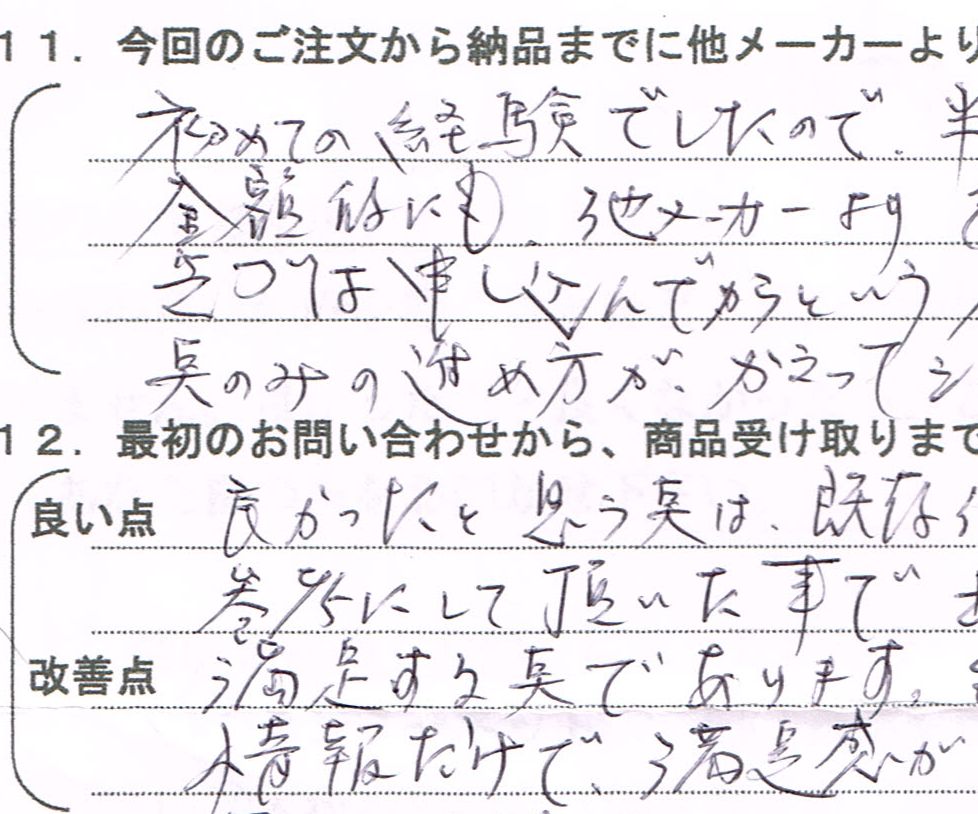 11. 今回のご注文から納品までに他メーカーより
初めての経験でしたので、半
金額的にも、他メーカーより
は申し込んでからという
点のみの進め方が、かえって
12. 最初のお問い合わせから、商品受け取りまで
良い点 良かったと思う点は、既存
参考にして頂いた事で
改善点 満足する点であります。
情報だけで、満足感が